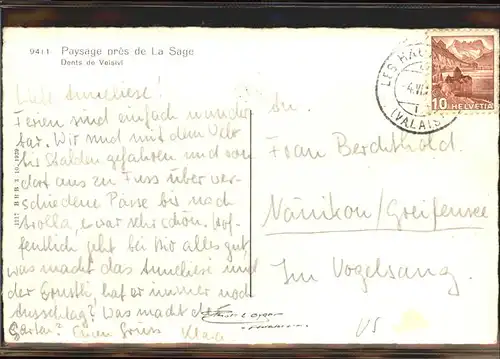 9411 Paysage près de La Sage
Dents de Veisivi
Liebe Anneliese!
Ferien sind einfach wunder
bar. Wir sind mit dem Velo
bis Stalden gefahren und von
dort aus zu Fuss über ver-
schiedene Pässe bis nach
Arolla, es war sehr schön. Hof-
fentlich geht bei Dir alles gut,
was macht das Anneliese und
der Ernstli, hat er immer noch
Ausschlag? Was macht der
Garten? Einen Gruss Klara
LES HAU
4.VII
(VALAIS)
10 HELVETIA
An
Frau Berchthold.
Nänikon/Greifensee
Im Vogelsang.